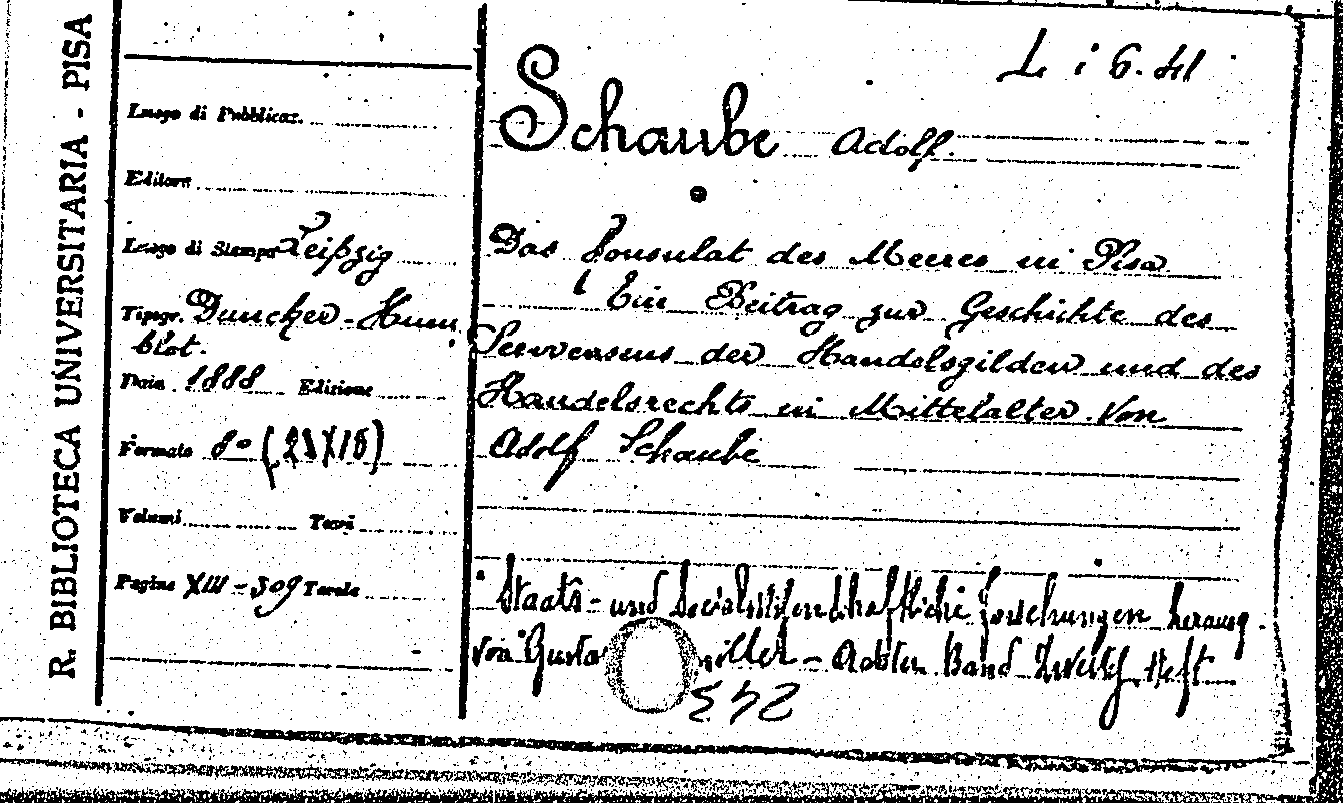 R. BIBLIOTECA UNIVERSITARIA - PISA
L i 6. 41
Schaube Adolf.
Luogo di Pubblicaz.
Editore
Luogo di Stampa Leipzig
Tipogr. Duncker - Hum
blot.
Data 1888 Edizione
Formato 8° (23X15)
Volumi Tomi
Pagine XIII - 309 Tavole
Das Consulat des Meeres in Pisa
Ein Beitrag zur Geschichte des
der Handelsgilden und des
Handelsrechts in Mittelalter. Von
Adolf Schaube
Staats - und Forschungen herausg.
von Gusta - Achten Band Zweites Heft
243